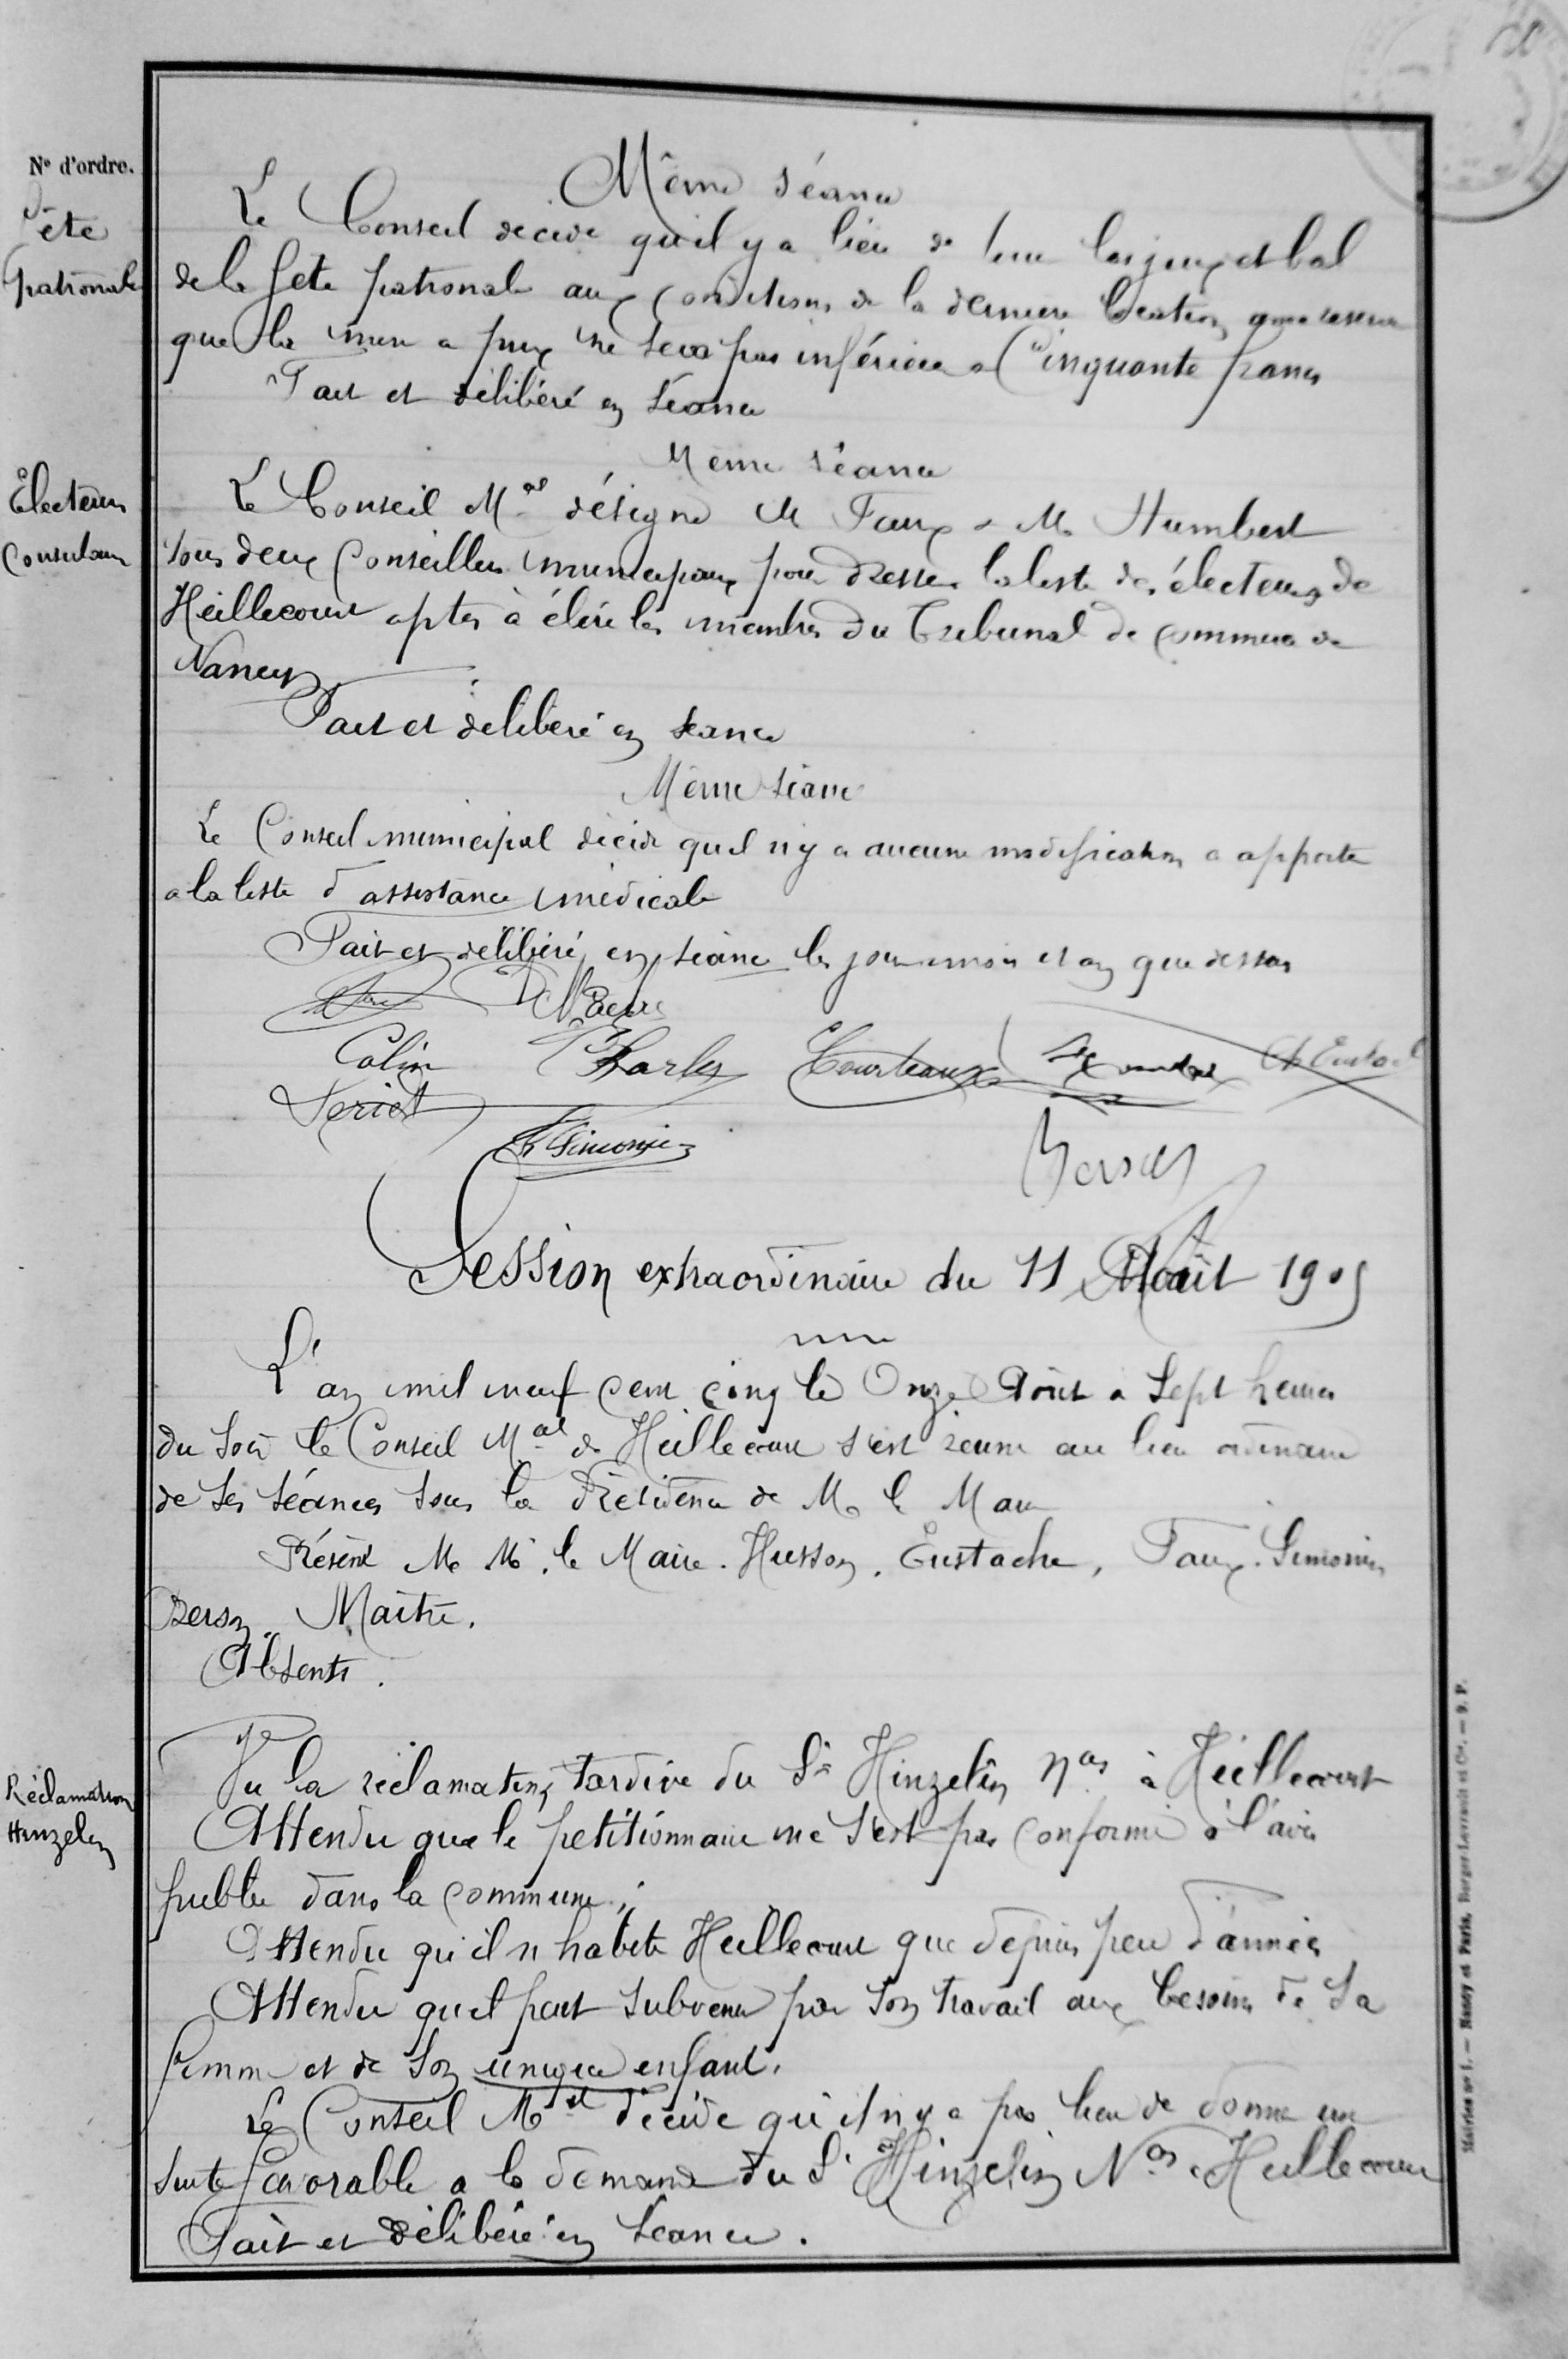 N° d'ordre.
Fête
patronale
Même séance
Le Conseil décide qu'il y a lieu de louer les jeux et bal
de la fete patronale aux conditions de la derniere location
que la mise a prix ne sera pas inférieure a Cinquante francs
Fait et délibéré en séance
Même séance
Electeurs
Consulaires
Le Conseil Mal désigne M Faux & M. Humbert
tous deux Conseillers municipaux pour dresser la liste des électeurs de
Heillecourt aptes à élire les membres du Tribunal de commerce de
Nancy
Fait et delibéré en séance
Même séance
Le Conseil municipal décide qu'il n'y a aucune modification a apporter
a la liste d'assistance médicale
Fait et délibéré en séance les jour mois et an que dessus
Colin Charles Courteaux Ch Eustache
Simonin
Berson
Session extraordinaire du 11 Août 1905
L'an mil neuf cent cinq le Onze Août a Sept heures
du soir le Conseil Mal de Heillecourt s'est réuni au lieu ordinaire
de ses séances sous la Présidence de M. le Maire
Présent M. M. le Maire. Husson. Eustache, Faux. Simonin
Berson. Maitre.
Absents.
Réclamation
Hinzelin
Vu la réclamation tardive du Sr Hinzelin Nas à Heillecourt
Attendu que le petitionnaire ne s'est pas conformé à l'avis
publié dans la commune;
Attendu qu'il n'habite Heillecourt que depuis peu d'années
Attendu qu'il peut subvenir par son travail aux besoins de sa
femme et de son unique enfant.
Le Conseil Mal décide qu'il n'y a pas lieu de donner une
suite favorable a la demande du Sr Hinzelin Nas à Heillecourt
Fait et délibéré en séance.
Mairies n° 1. — Nancy et Paris, Berger-Levrault et Cie. — 9. P.